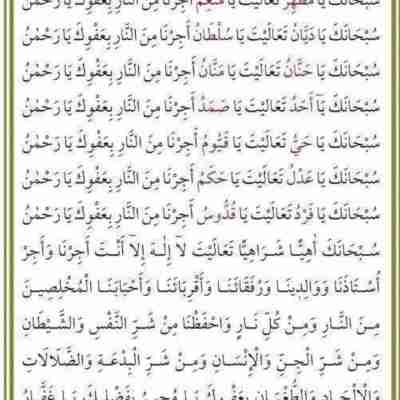 سُبْحَانَكَ يَا مُظْهِرُ تَعَالَيْتَ يَا مُنْعِمُ اَجِرْنَا مِنَ النَّارِ بِعَفْوِكَ يَا رَحْمٰنُ
سُبْحَانَكَ يَا دَيَّانُ تَعَالَيْتَ يَا سُلْطَانُ اَجِرْنَا مِنَ النَّارِ بِعَفْوِكَ يَا رَحْمٰنُ
سُبْحَانَكَ يَا حَنَّانُ تَعَالَيْتَ يَا مَنَّانُ اَجِرْنَا مِنَ النَّارِ بِعَفْوِكَ يَا رَحْمٰنُ
سُبْحَانَكَ يَا اَحَدُ تَعَالَيْتَ يَا صَمَدُ اَجِرْنَا مِنَ النَّارِ بِعَفْوِكَ يَا رَحْمٰنُ
سُبْحَانَكَ يَا حَيُّ تَعَالَيْتَ يَا قَيُّومُ اَجِرْنَا مِنَ النَّارِ بِعَفْوِكَ يَا رَحْمٰنُ
سُبْحَانَكَ يَا عَدْلُ تَعَالَيْتَ يَا حَكَمُ اَجِرْنَا مِنَ النَّارِ بِعَفْوِكَ يَا رَحْمٰنُ
سُبْحَانَكَ يَا فَرْدُ تَعَالَيْتَ يَا قُدُّوسُ اَجِرْنَا مِنَ النَّارِ بِعَفْوِكَ يَا رَحْمٰنُ
سُبْحَانَكَ اٰهِيًّا شَرَاهِيًّا تَعَالَيْتَ لَآ اِلٰهَ اِلَّآ اَنْتَ اَجِرْنَا وَاَجِرْ
اُسْتَاذَنَا وَوَالِدِينَا وَرُفَقَائَنَا وَاَقْرِبَائَنَا وَاَحْبَابَنَا الْمُخْلِصِينَ
مِنَ النَّارِ وَمِنْ كُلِّ نَارٍ وَاحْفَظْنَا مِنْ شَرِّ النَّفْسِ وَالشَّيْطَانِ
وَمِنْ شَرِّ الْجِنِّ وَالْاِنْسَانِ وَمِنْ شَرِّ الْبِدْعَةِ وَالضَّلَالَاتِ
وَالْاِلْحَادِ وَالطُّغْيَانِ بِعَفْوِكَ يَا مُجِيرُ بِفَضْلِكَ يَا غَفَّارُ